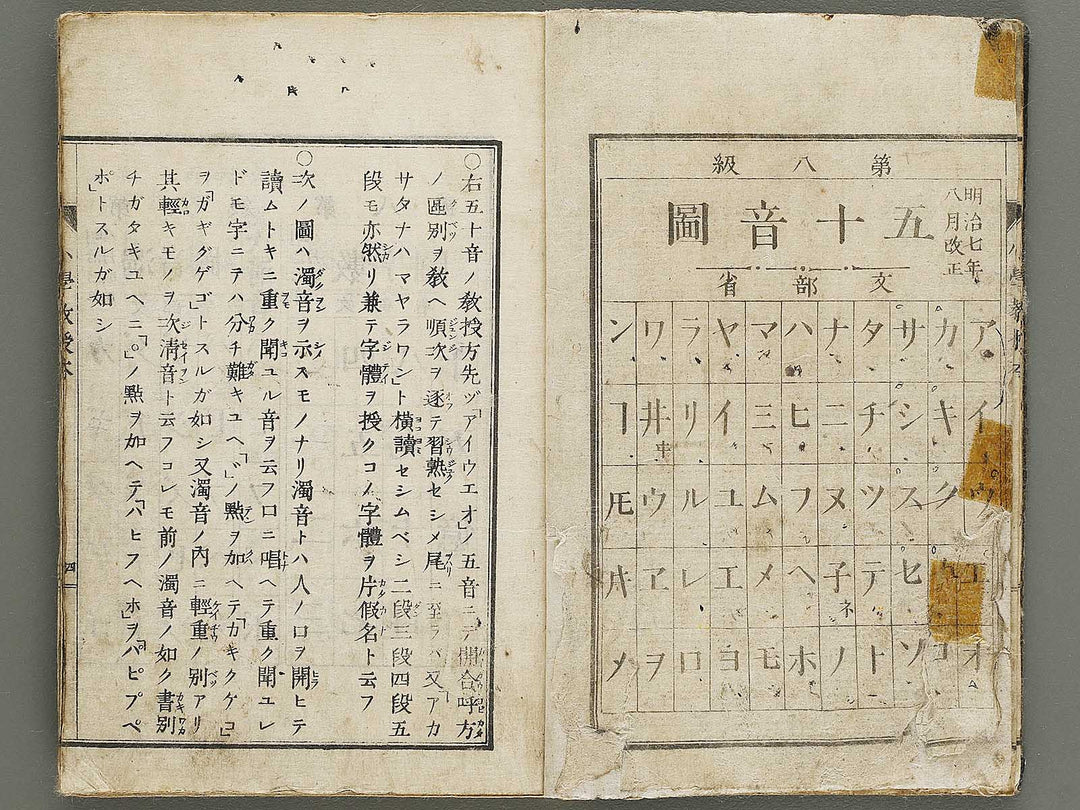 第八級
明治七年
八月改正
五十音圖
文部省
アイウエオ
カキクケコ
サシスセソ
タチツテト
ナニヌ子ノ
ネ
ハヒフヘホ
マミムメモ
ヤイユエヨ
ラリルレロ
ワ井ウヱヲ
ヰ
ンヿ𪜈〆
○右五十音ノ敎授方先ヅ「アイウエオ」ノ五音ニテ開合呼方
ノ區別ヲ敎ヘ順次ヲ逐テ習熟セシメ尾ニ至ラバ又「アカ
サタナハマヤラワン」ト橫讀セシムベシ二段三段四段五
段モ亦然リ兼テ字體ヲ授クコノ字體ヲ片假名ト云フ
○次ノ圖ハ濁音ヲ示スモノナリ濁音トハ人ノ口ヲ開ヒテ
讀ムトキニ重ク聞ユル音ヲ云フ口ニ唱ヘテ重ク聞ユレ
ドモ字ニテハ分チ難キユヘ「゛」ノ點ヲ加ヘテ「カキクケコ」
ヲ「ガギグゲゴ」トスルガ如シ又濁音ノ內ニ輕重ノ別アリ
其輕キモノヲ次淸音ト云フコレモ前ノ濁音ノ如ク書別
チガタキユヘニ「゜」ノ點ヲ加ヘテ「ハヒフヘホ」ヲ「パピプペ
ポ」トスルガ如シ
小學敎授本
四